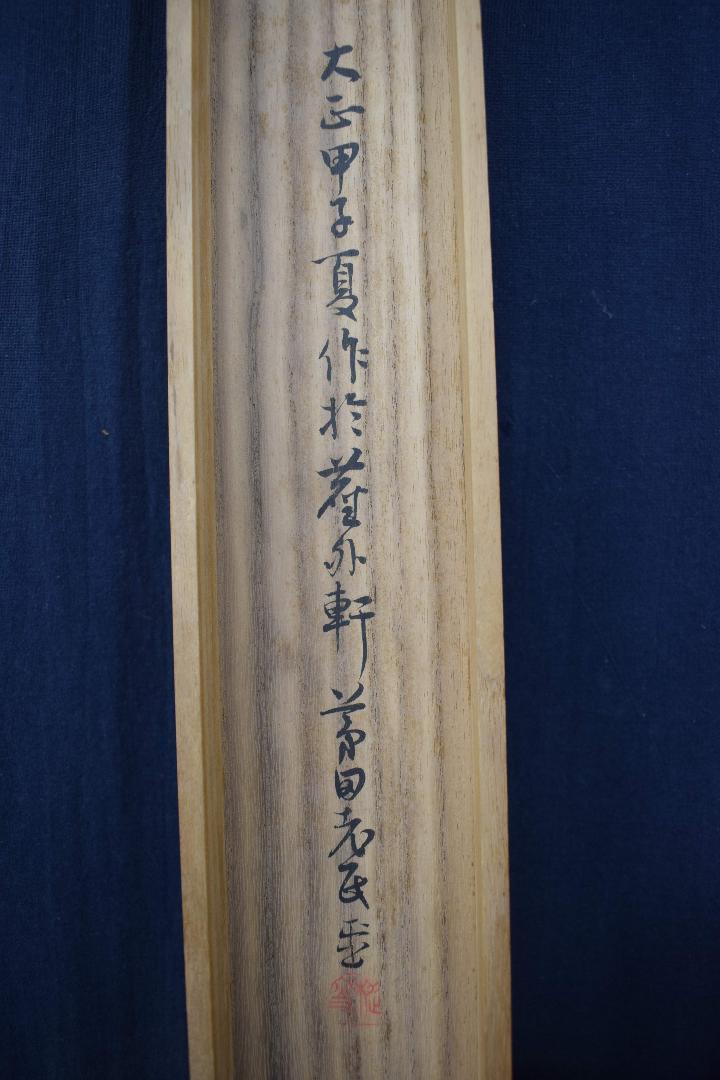 大正甲子夏作於塵外軒 田老民